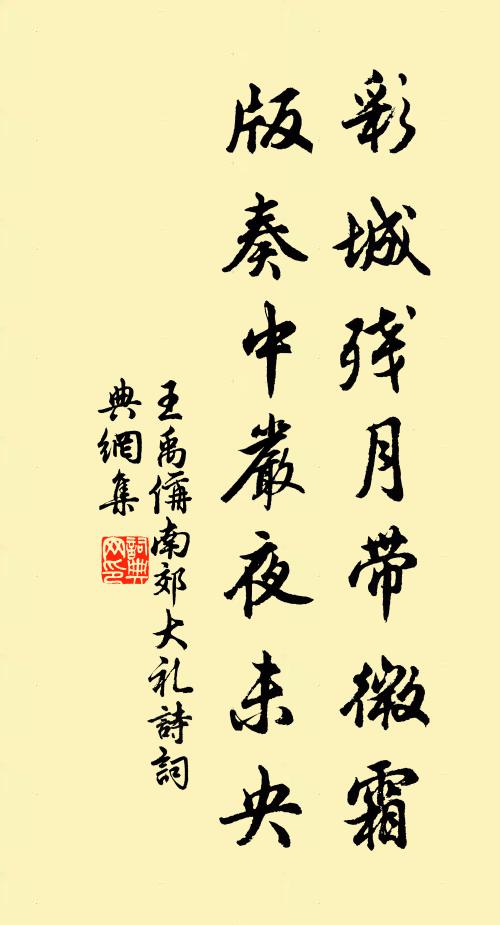 彩城残月带微霜
版奏中嚴夜未央
王禹偁南郊大礼詩詞
典網集
詞典网印